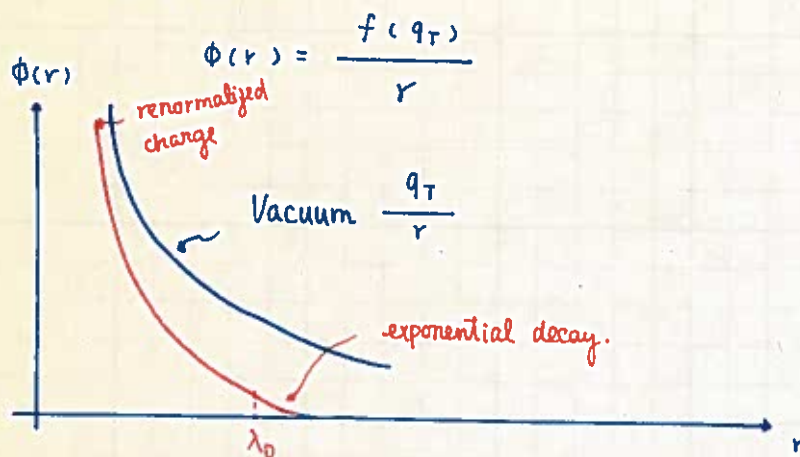 ϕ(r) = f(q_T) / r
ϕ(r)
renormalized
charge
Vacuum q_T / r
exponential decay.
λ_D
r